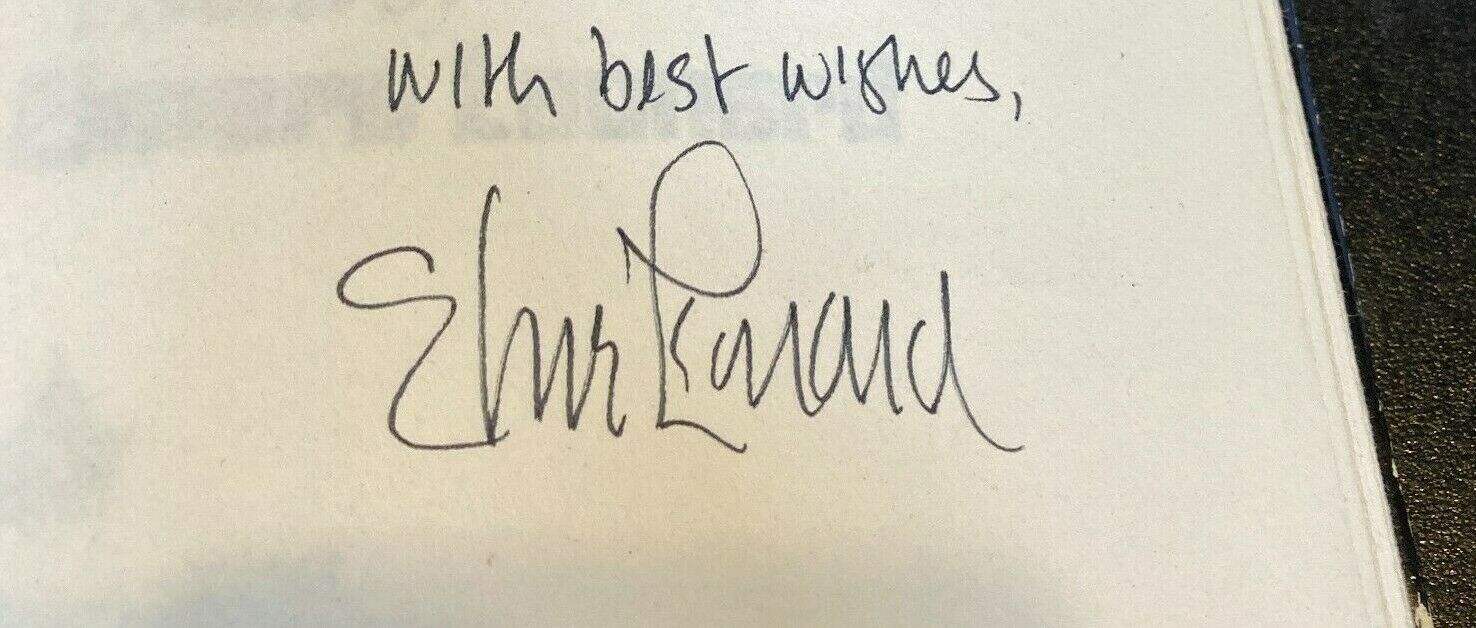 with best wishes,
Elmore Leonard